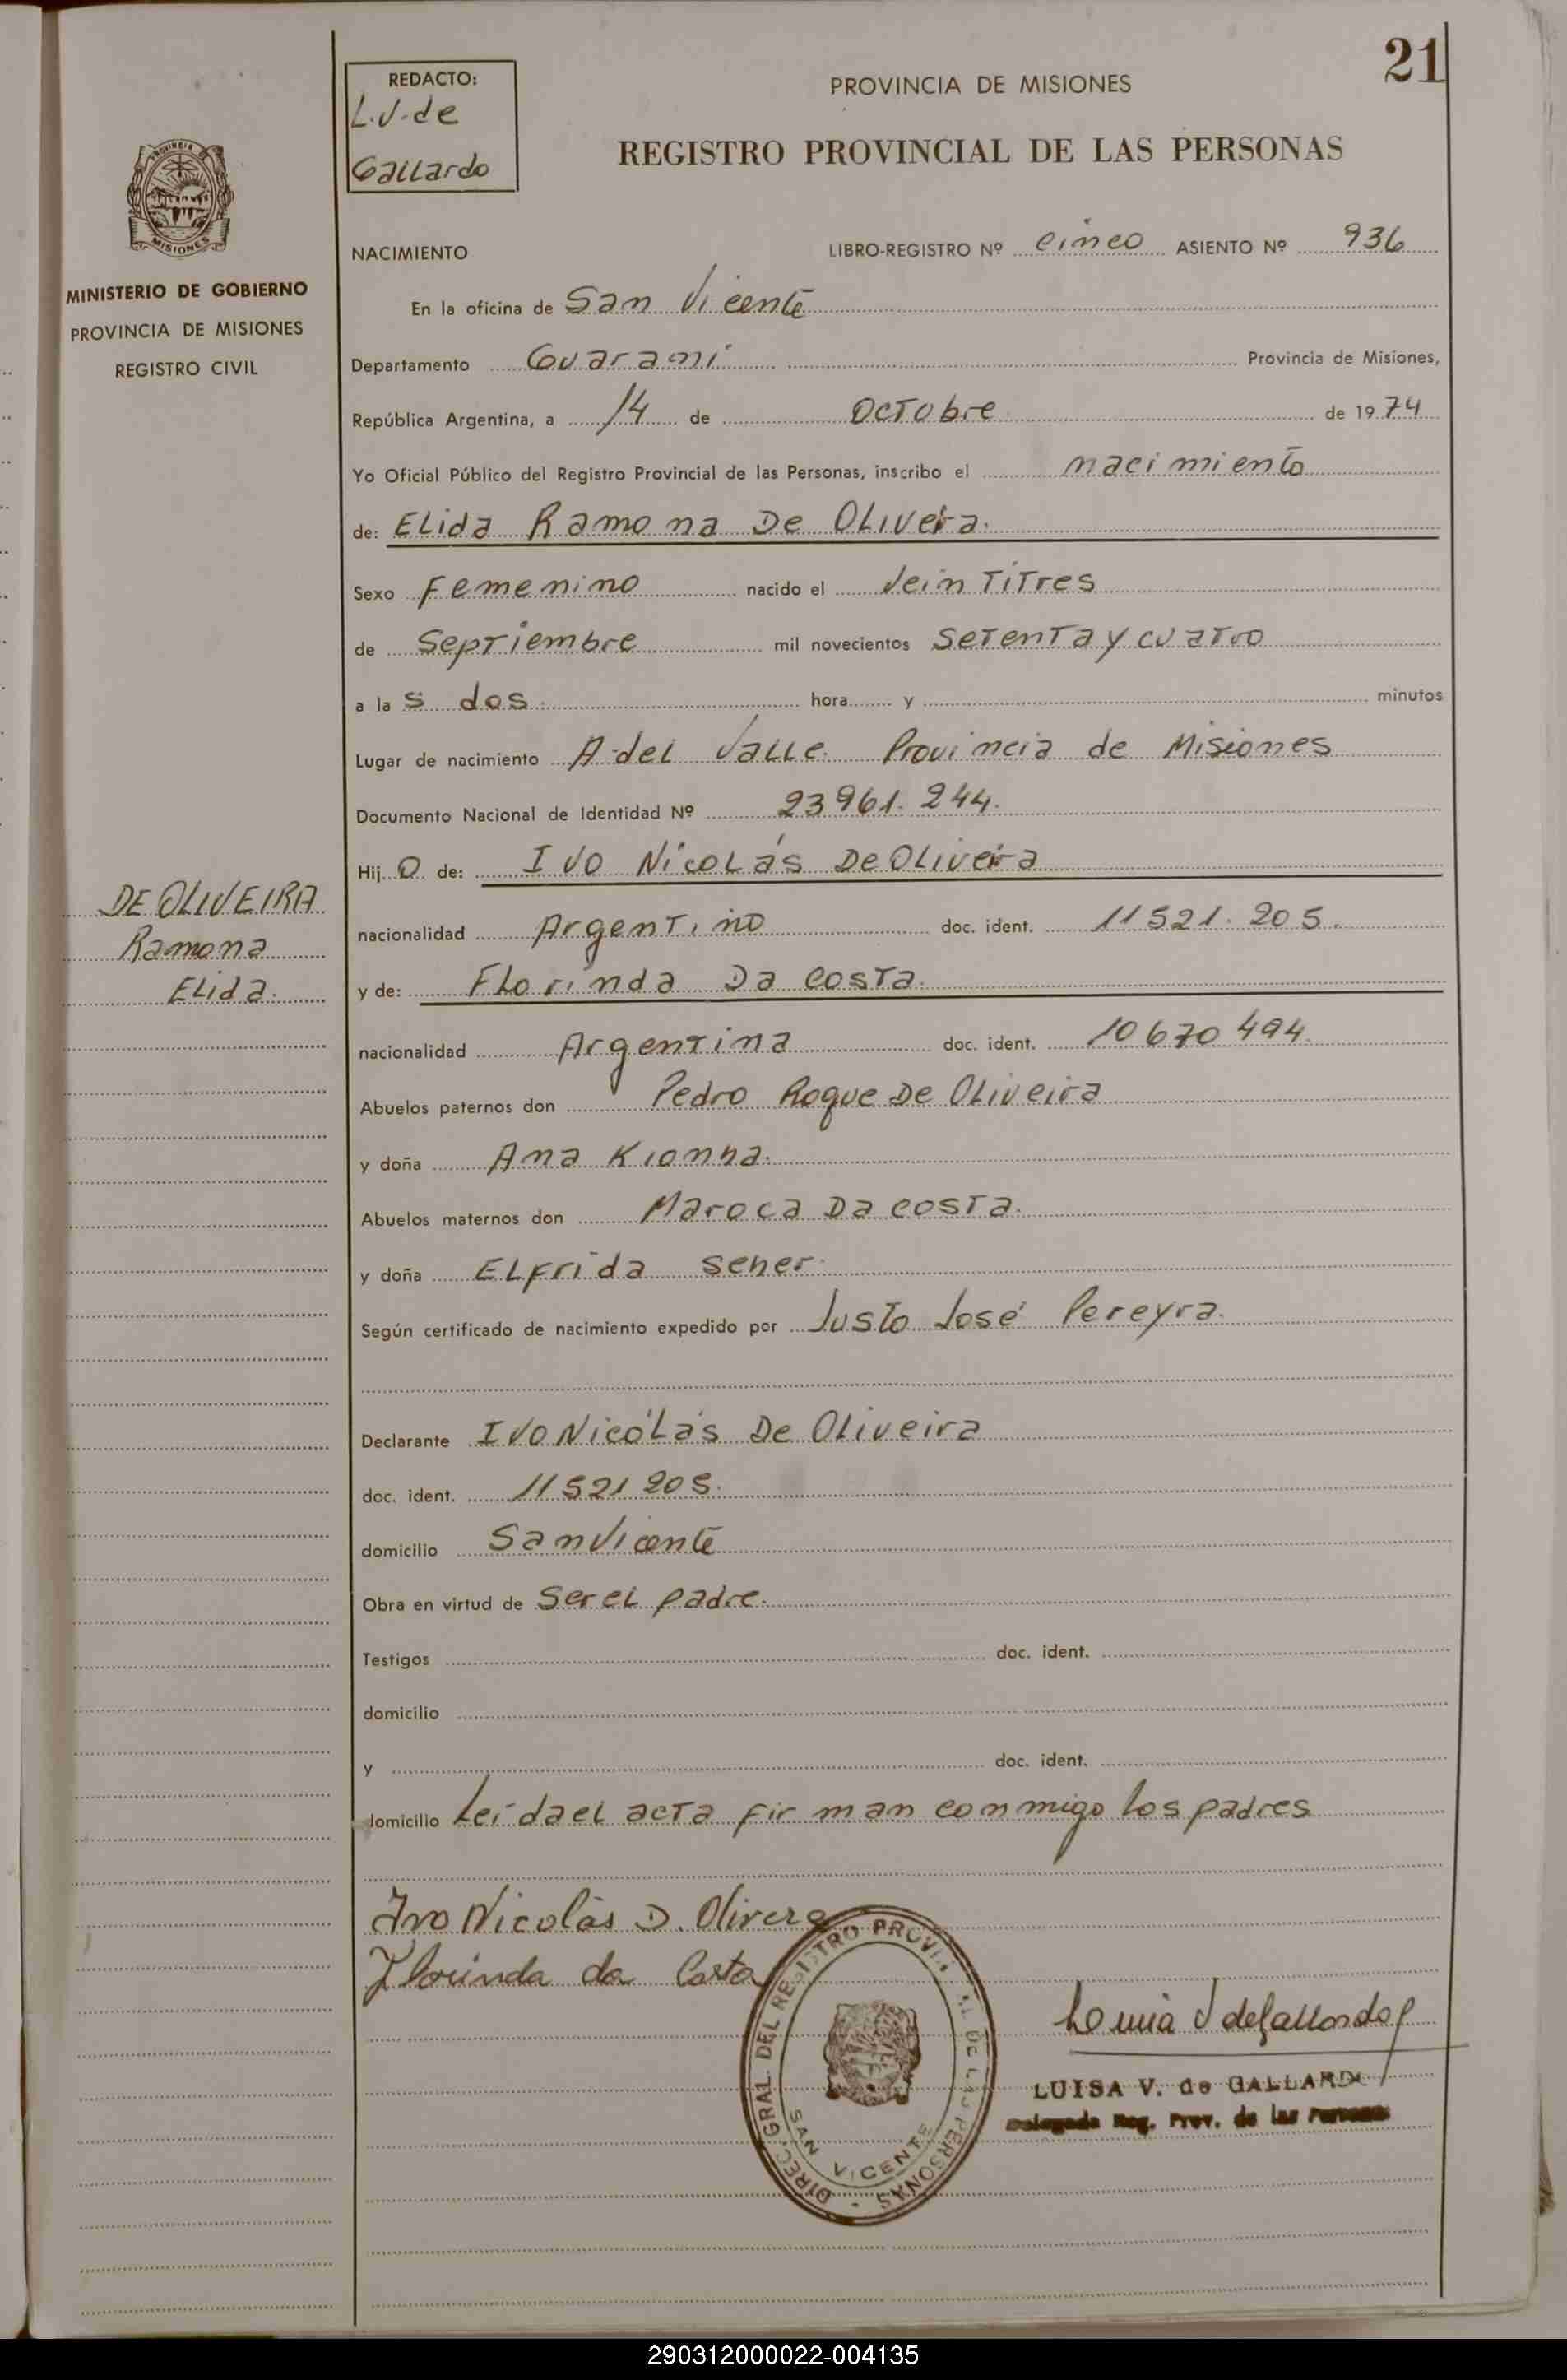 21
REDACTO:
L.V. de
Gallardo
PROVINCIA DE MISIONES
REGISTRO PROVINCIAL DE LAS PERSONAS
PROVINCIA DE
MISIONES
MINISTERIO DE GOBIERNO
PROVINCIA DE MISIONES
REGISTRO CIVIL
NACIMIENTO LIBRO-REGISTRO Nº cinco ASIENTO Nº 936
En la oficina de San Vicente
Departamento Guaraní Provincia de Misiones,
República Argentina, a 14 de Octobre de 1974
Yo Oficial Público del Registro Provincial de las Personas, inscribo el nacimiento
de: Elida Ramona De Oliveira.
Sexo Femenino nacido el Veintitres
de Septiembre mil novecientos setenta y cuatro
a las dos. hora y minutos
Lugar de nacimiento A. del Valle. Provincia de Misiones
Documento Nacional de Identidad Nº 23961.244.
Hijo de: Ivo Nicolás De Oliveira
DE OLIVEIRA
Ramona
Elida.
nacionalidad Argentino doc. ident. 11521.205.
y de: Florinda Da Costa.
nacionalidad Argentina doc. ident. 10670494.
Abuelos paternos don Pedro Roque De Oliveira
y doña Ana Kionha.
Abuelos maternos don Maroca Da Costa.
y doña Elfrida Seher.
Según certificado de nacimiento expedido por Justo José Pereyra.
Declarante Ivo Nicolás De Oliveira
doc. ident. 11521205.
domicilio San Vicente
Obra en virtud de ser el padre.
Testigos doc. ident.
domicilio
y doc. ident.
domicilio Leída el acta firman conmigo los padres
Ivo Nicolás D. Olivera
Florinda da Costa
DIREC. GRAL. DEL REGISTRO PROVIN AL DE LAS PERSONAS -
SAN VICENTE
LUISA V. de GALLARDO
Delegada Reg. Prov. de las Personas
290312000022-004135